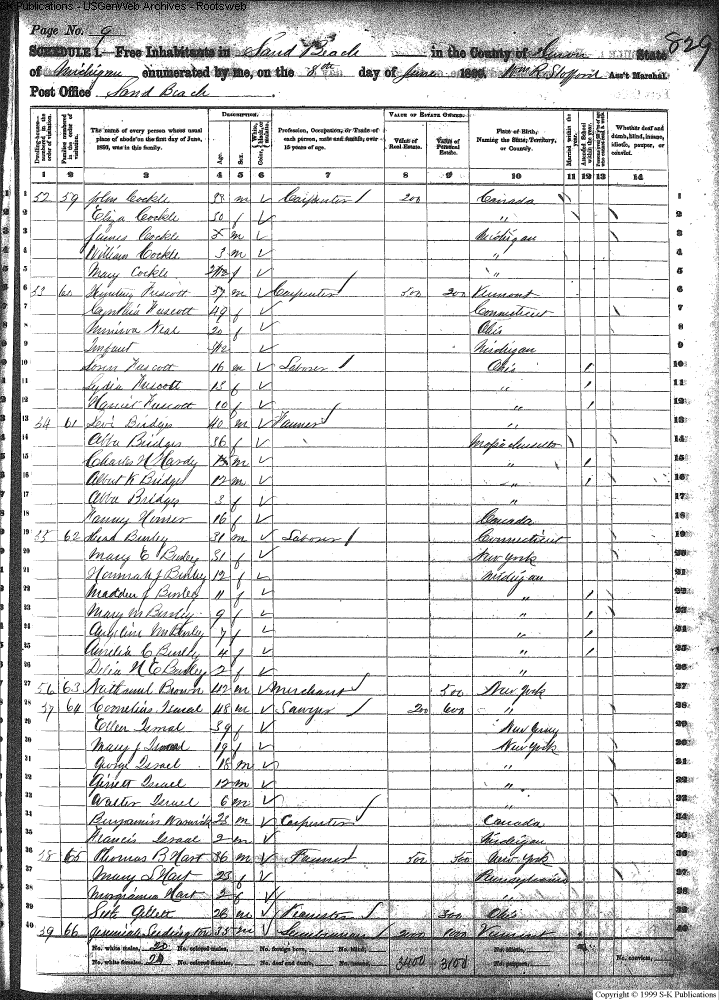 K Publications - USGenWeb Archives - Rootsweb
Page No. 9
829
SCHEDULE 1.—Free Inhabitants in Sand Beach in the County of Huron State
of Michigan enumerated by me, on the 8th day of June 1860. Wm R. Stafford Ass't Marshal.
Post Office Sand Beach
DESCRIPTION. VALUE OF ESTATE OWNED.
The name of every person whose usual place of abode on the first day of June, 1860, was in this family.
Age. Sex.
Profession, Occupation, or Trade of each person, male and female, over 15 years of age.
Value of Real Estate. Value of Personal Estate.
Place of Birth, Naming the State, Territory, or Country.
Married within the year. Attended School within the year.
Whether deaf and dumb, blind, insane, idiotic, pauper, or convict.
1 2 3 4 5 6 7 8 9 10 11 12 13 14
1 52 59 John Cockle m Carpenter 200 Canada 1
2 Eliza Cockle 30 f " 2
3 James Cockle m Michigan 3
4 William Cockle 3 m " 4
5 Mary Cockle f " 5
6 53 60 Prescott 57 m Carpenter 500 200 Vermont 6
7 Cynthia Prescott 49 f Connecticut 7
8 Minerva Neal 20 f Ohio 8
9 Infant Michigan 9
10 Prescott 16 m Laborer Ohio 10
11 Lydia Prescott 13 f " 11
12 Harriet Prescott 10 f " 12
13 54 61 Levi Bridges 40 m Farmer " 13
14 Abba Bridges 36 f Massachusetts 14
15 Charles H Hardy m " 15
16 Albert K Bridges 12 m " 16
17 Abba Bridges 3 f " 17
18 Fanny 16 f Canada 18
19 55 62 Burley 31 m Laborer Connecticut 19
20 Mary E Burley 31 f New York 20
21 Hannah J Burley 12 f Michigan 21
22 J Burley 11 f " 22
23 Mary M Burley 9 f " 23
24 Angeline M Burley 7 f " 24
25 Amelia C Burley 4 f " 25
26 Delia N E Burley 2 f " 26
27 56 63 Nathaniel Brown 42 m Merchant 500 New York 27
28 57 64 Cornelius Israel 48 m Sawyer 200 600 " 28
29 Ellen Israel 39 f New Jersey 29
30 Mary J Israel 19 f New York 30
31 George Israel 18 m " 31
32 Garrett Israel 12 m " 32
33 Walter Israel 6 m " 33
34 Benjamin Warwick 23 m Carpenter Canada 34
35 Francis Israel 2 m Michigan 35
36 58 65 Thomas B Hart 36 m Farmer 500 500 New York 36
37 Mary S Hart 23 f Pennsylvania 37
38 Hart 2 f " 38
39 Gillett 26 m 300 Ohio 39
40 59 66 Jeremiah 35 m Lumberman 2000 1000 Vermont 40
No. white males, 20 No. colored males, No. foreign born, No. blind, 3400 3100 No. idiotic, No. convicts,
No. white females, No. colored females, No. deaf and dumb, No. insane, No. paupers,
Copyright © 1999 S-K Publications